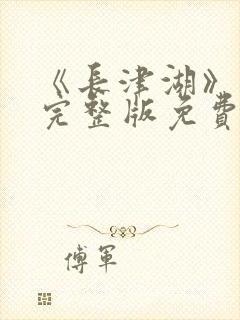 《長津湖》
完整版免費
傅軍